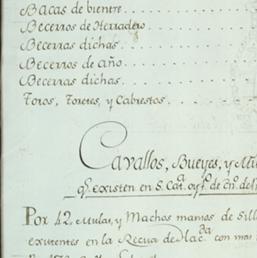 Bacas de bienere
Becerros de Herradero
Becerras dichas
Becerros de año
Becerras dichas
Toros, Toretes, y Cabrestos
Cavallos, Bueyes, y
qe. existen en S. Cata.
Por 42. Mulas, y Machos mansos de Sill
existentes en la Recua de Hacda. con mas